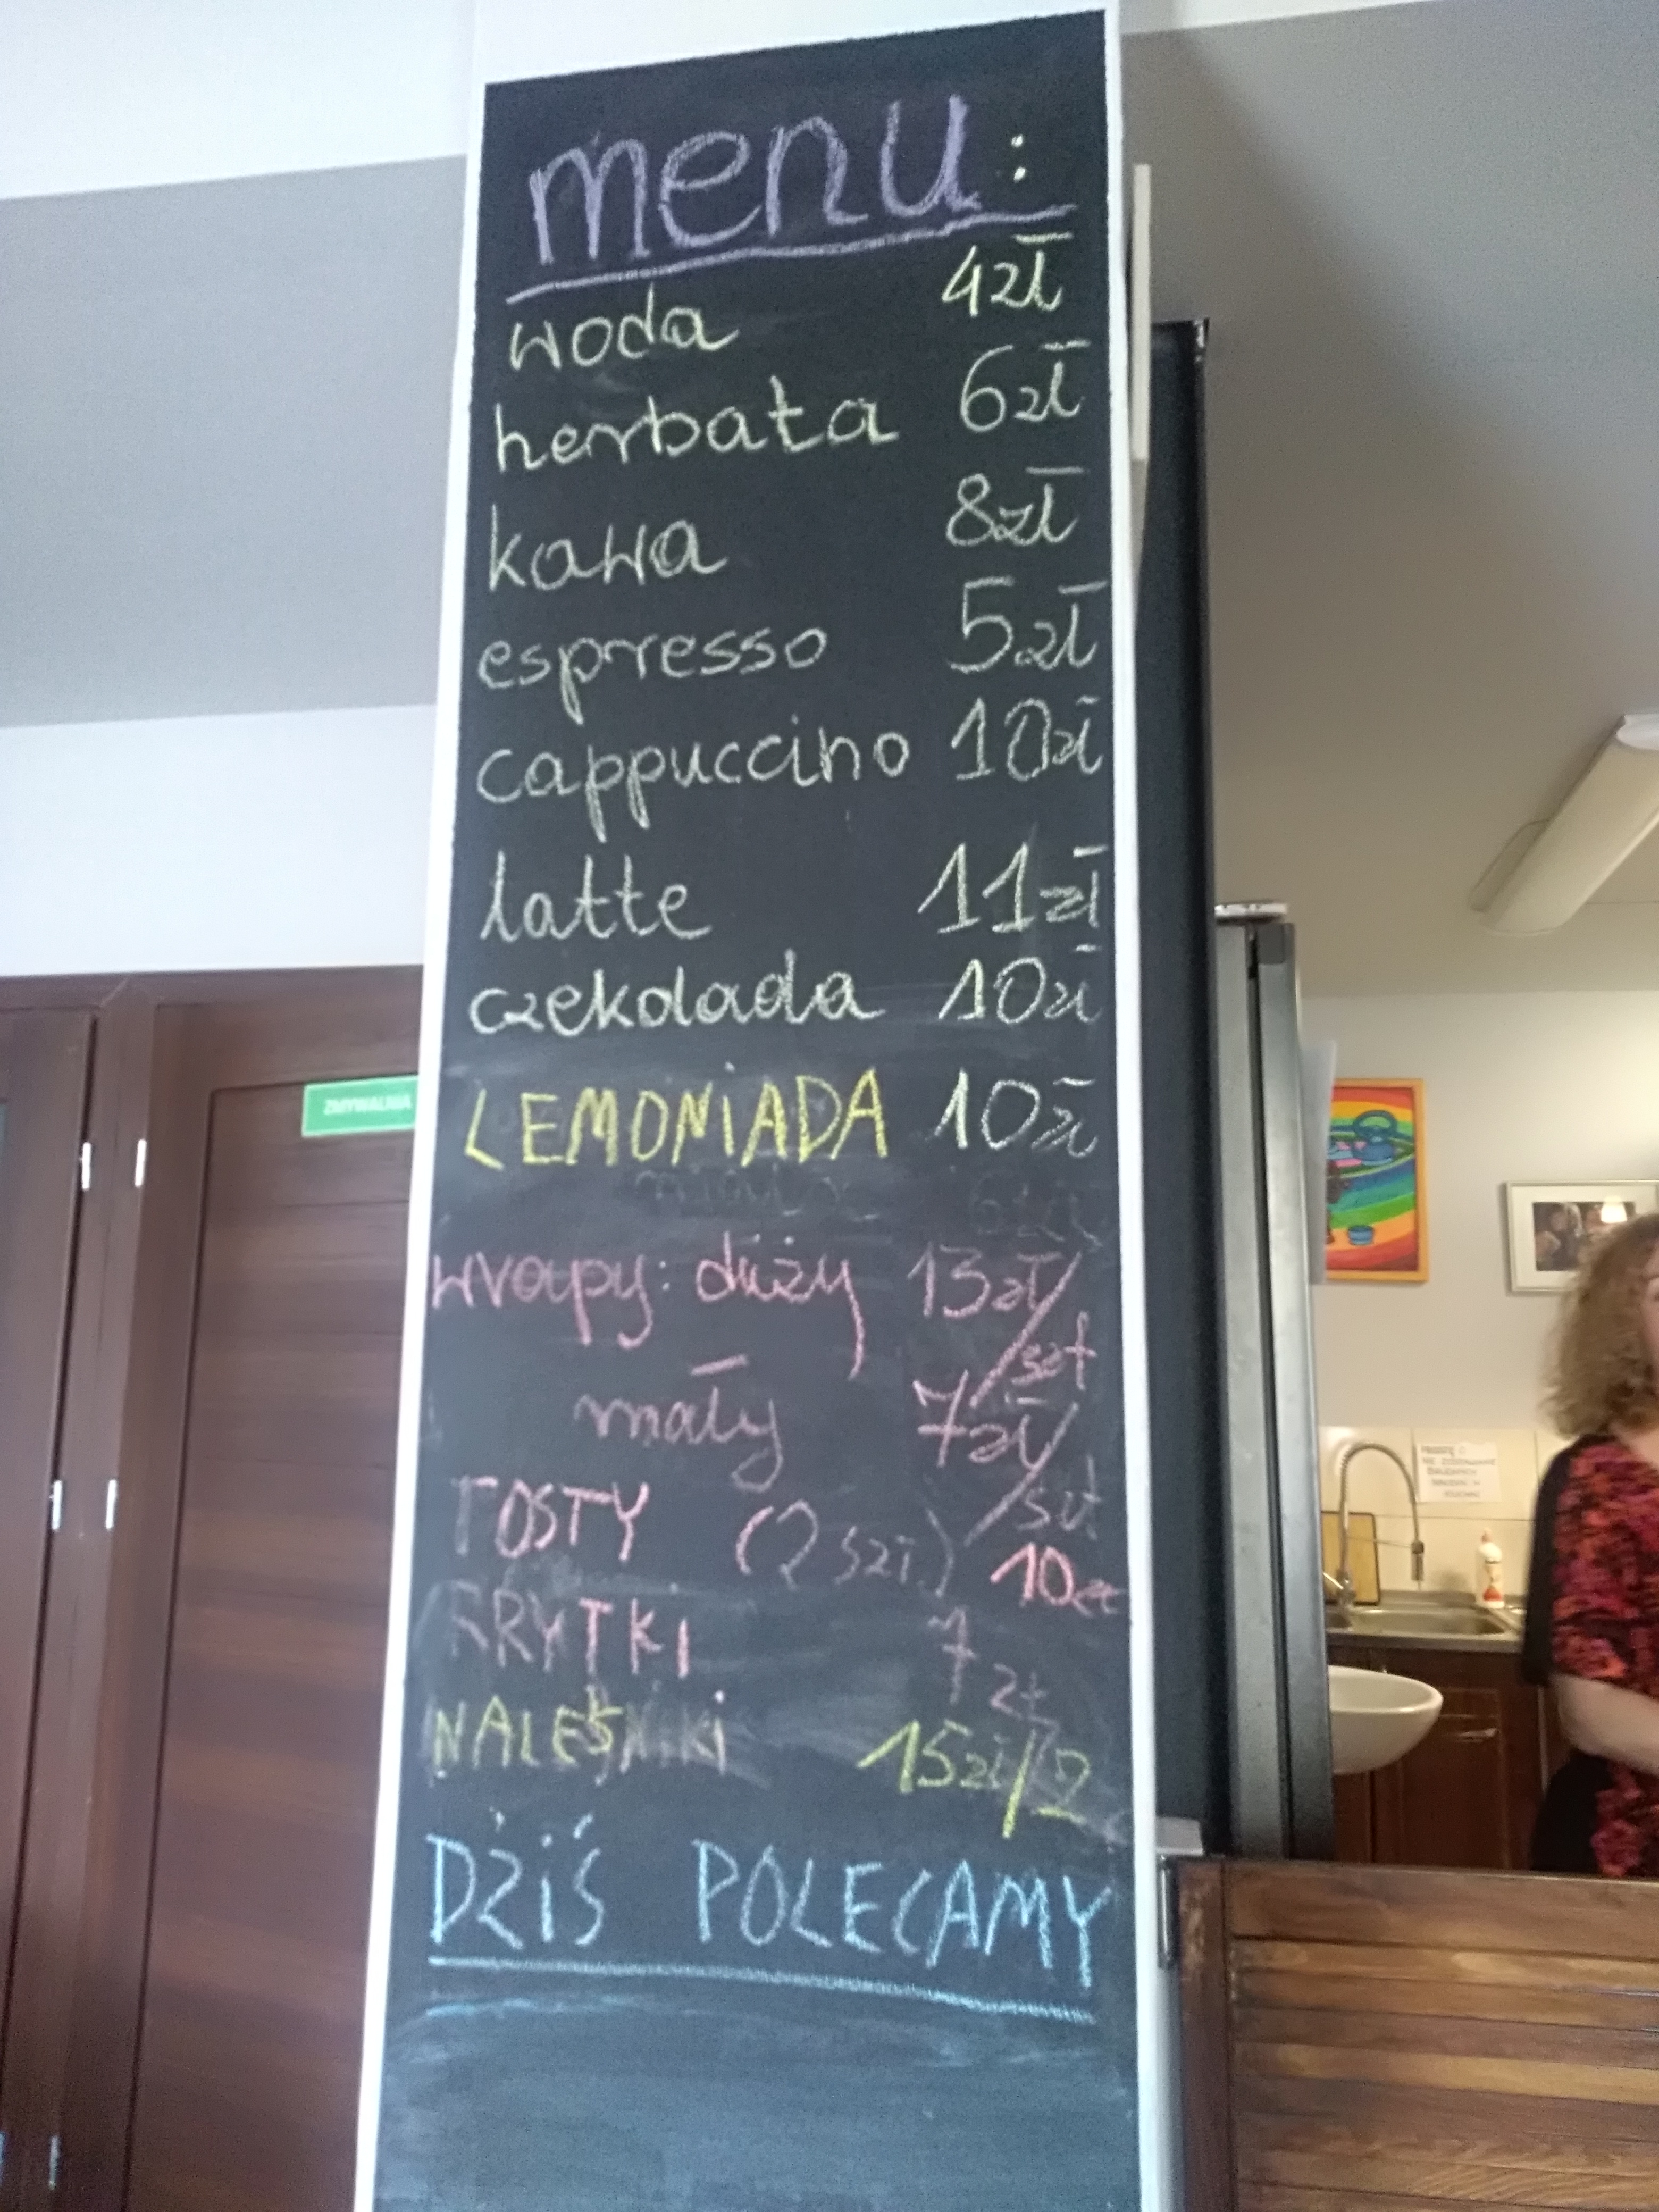 menu:
woda 4zł
herbata 6zł
kawa 8zł
espresso 5zł
cappuccino 10zł
latte 11zł
czekolada 10zł
LEMONiADA 10zł
wrapy: duży 13zł/szt
mały 7zł/szt
TOSTY (2 szt.) 10zł
FRYTKi 7 zł
NALEŚNiKi 15zł/2
DZiŚ POLECAMY
ZMYWALNIA